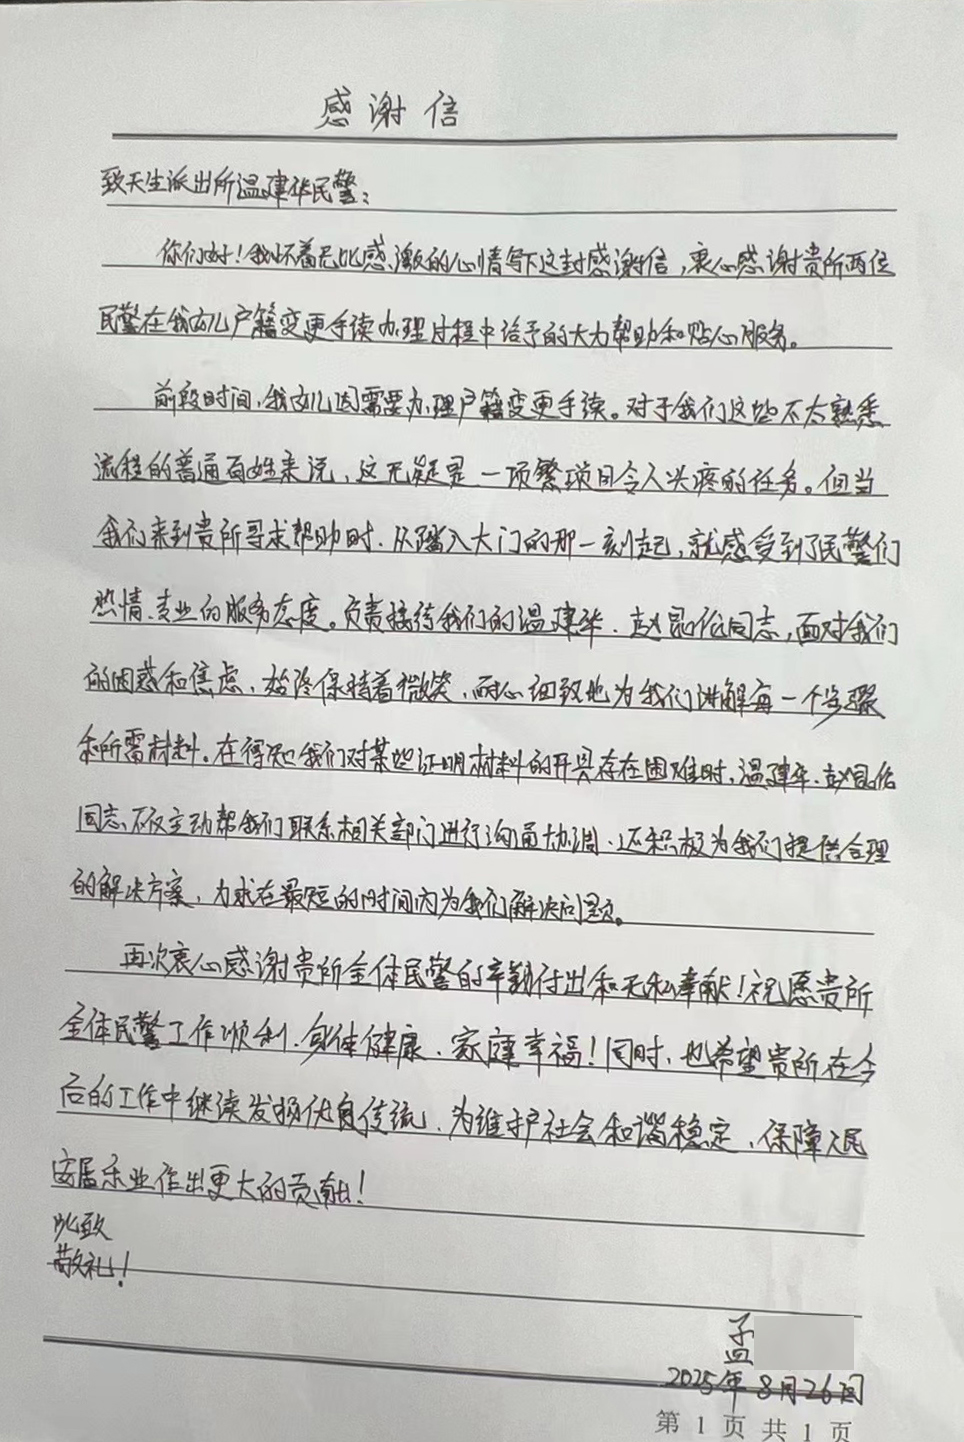 感谢信
致天生派出所温建华民警：
你们好！我怀着无比感激的心情写下这封感谢信，衷心感谢贵所两位
民警在我女儿户籍变更手续办理过程中给予的大力帮助和贴心服务。
前段时间，我女儿因需要办理户籍变更手续。对于我们这些不太熟悉
流程的普通百姓来说，这无疑是一项繁琐且令人头疼的任务。但当
我们来到贵所寻求帮助时，从踏入大门的那一刻起，就感受到了民警们
热情、专业的服务态度。负责接待我们的温建华、赵昆伦同志，面对我们
的困惑和焦虑，始终保持着微笑，耐心细致地为我们讲解每一个步骤
和所需材料。在得知我们对某些证明材料的开具存在困难时，温建华、赵昆伦
同志不仅主动帮我们联系相关部门进行沟通协调，还积极为我们提供合理
的解决方案，力求在最短的时间内为我们解决问题。
再次衷心感谢贵所全体民警的辛勤付出和无私奉献！祝愿贵所
全体民警工作顺利、身体健康、家庭幸福！同时，也希望贵所在今
后的工作中继续发扬优良传统，为维护社会和谐稳定、保障人民
安居乐业作出更大的贡献！
此致
敬礼！
孟
2025年8月26日
第 1 页 共 1 页